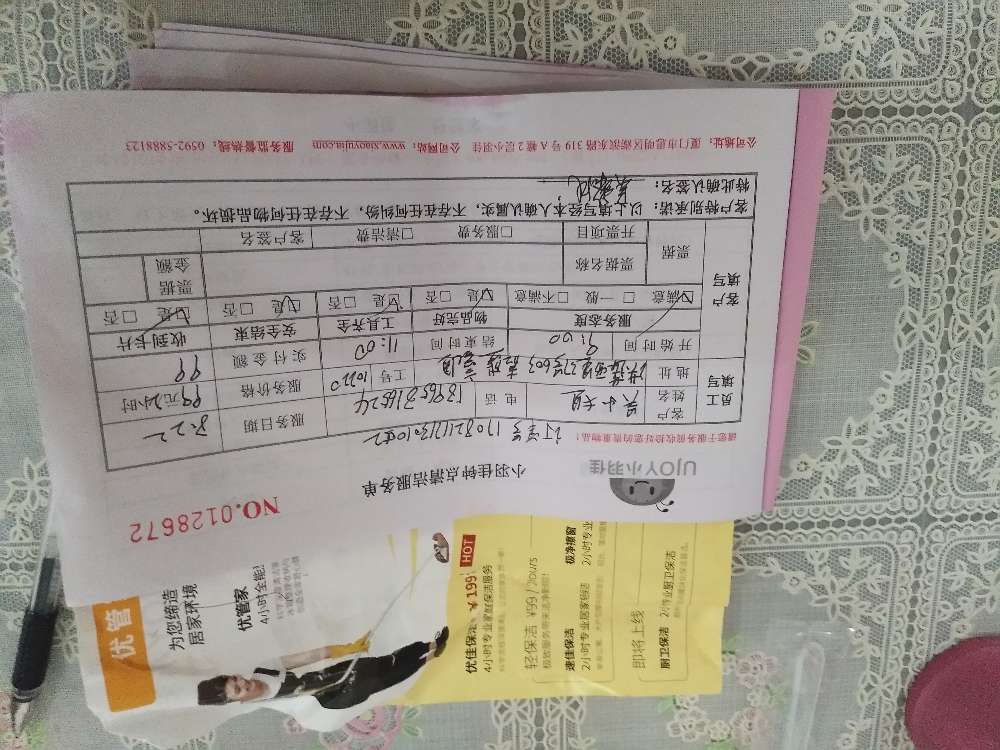 NO.0128672
UJOY小羽佳
小羽佳钟点清洁服务单
请您于服务前收捡好您的贵重物品!
员工填写
客户姓名
电话
服务日期
8.22
地址
工号 10220
服务价格
99元2小时
开始时间
9:00
结束时间
11:00
实付金额
99
客户填写
服务态度
物品完好
工具齐全
安全结束
收到卡片
☑满意 □一般 □不满意
☑是 □否
☑是 □否
☑是 □否
☑是 □否
票据
票据名称
票据金额
开票项目
□服务费 □清洁费
客户签名
客户特别承诺: 以上填写经本人确认属实,不存在任何纠纷,不存在任何物品损坏。
特此确认签名:
公司地址: 厦门市思明区湖滨东路 319 号 A 幢 2 层小羽佳 公司网站: www.xiaoyujia.com 服务监督热线: 0592-5888123
优管
为您缔造
居家环境
优管家
4小时全能!
优佳保洁 ¥199 HOT
4小时专业家庭保洁服务
轻保洁 ¥99/2ours
速佳保洁
2小时专业居家保洁
极净擦窗
即将上线
厨卫保洁
2小时专业厨卫保洁